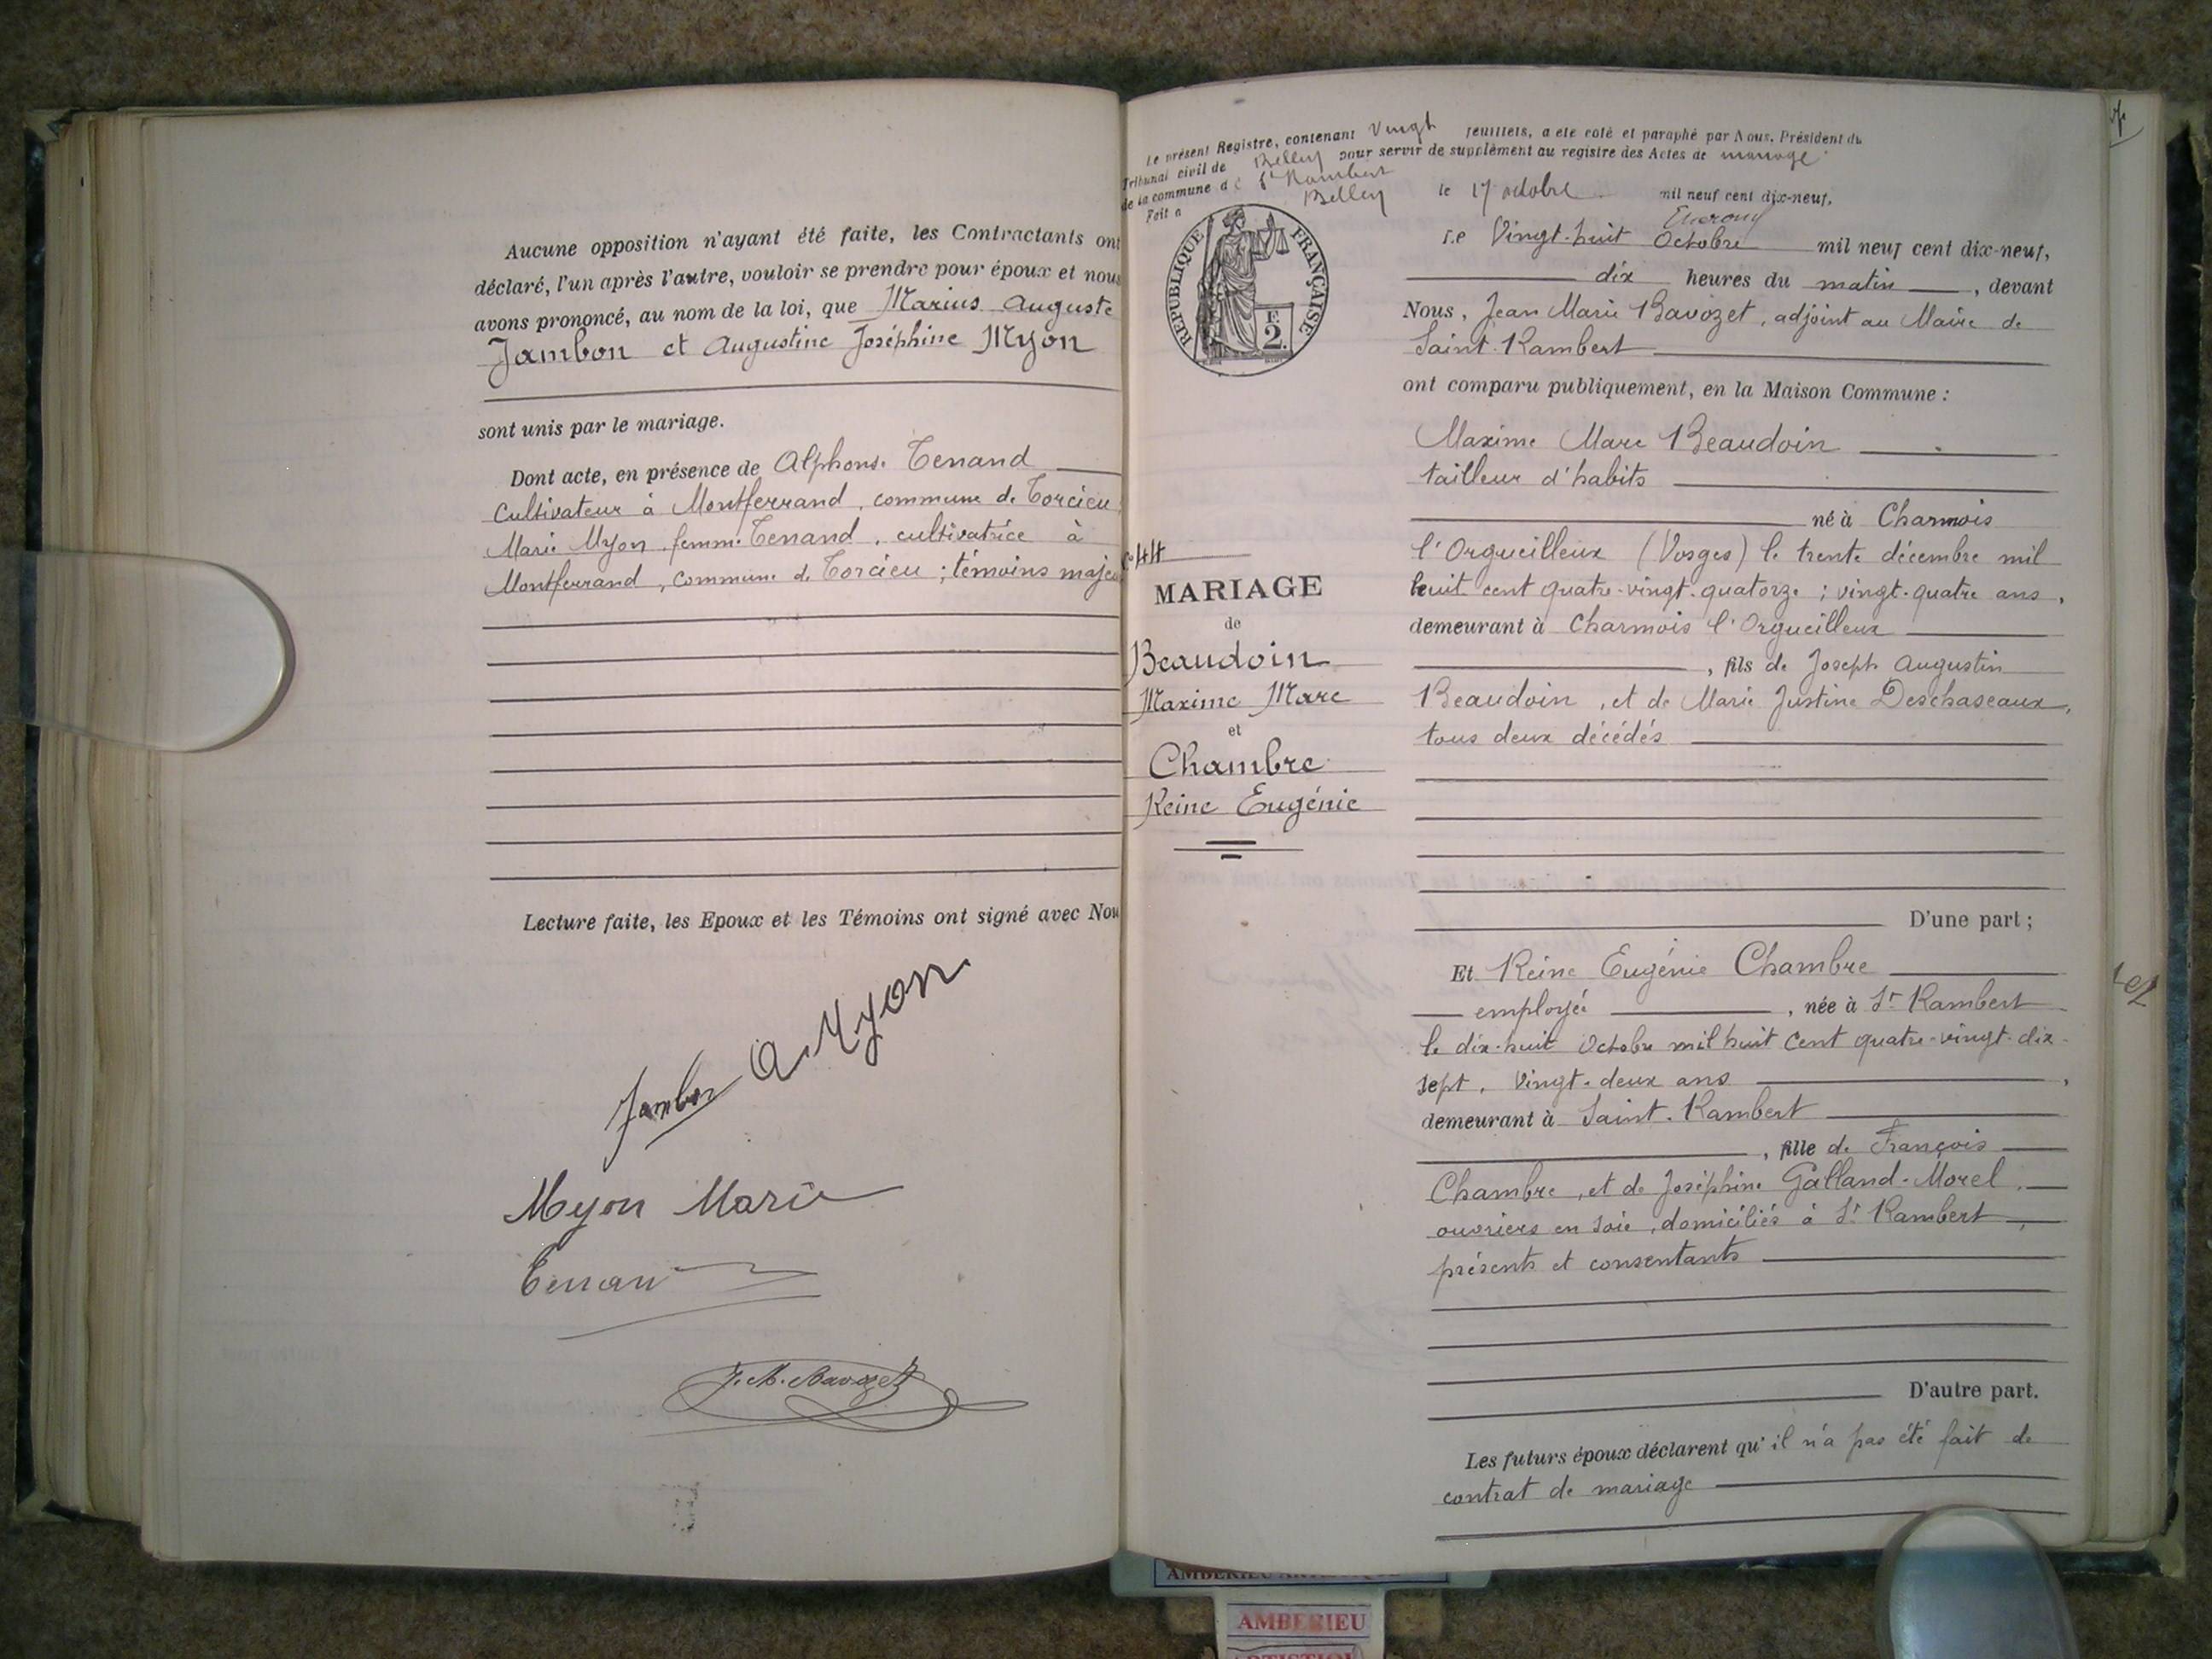 Aucune opposition n'ayant été faite, les Contractants ont
déclaré, l'un après l'autre, vouloir se prendre pour époux et nous
avons prononcé, au nom de la loi, que Marius Auguste
Jambon et Augustine Joséphine Myon
sont unis par le mariage.
Dont acte, en présence de Alphonse Tenand
Cultivateur à Montferrand, commune de Torcieu
Marie Myon femme Tenand, cultivatrice à
Montferrand, commune de Torcieu ; témoins majeu
Lecture faite, les Epoux et les Témoins ont signé avec Nou
Jambon A. Myon
Myon Marie
Tenan
J. M. Bavozet
Le présent Registre, contenant Vingt feuillets, a été coté et paraphé par Nous, Président du
Tribunal civil de Belley pour servir de supplément au registre des Actes de mariage
de la commune de St Rambert
Fait à Belley le 17 octobre mil neuf cent dix-neuf.
RÉPUBLIQUE FRANÇAISE
F.
2.
Le Vingt-huit Octobre mil neuf cent dix-neuf,
dix heures du matin, devant
Nous, Jean Marie Bavozet, adjoint au Maire de
Saint-Rambert
ont comparu publiquement, en la Maison Commune :
Maxime Marc Beaudoin
tailleur d'habits
né à Charmois
l'Orgueilleux (Vosges) le trente décembre mil
huit cent quatre-vingt-quatorze ; vingt-quatre ans,
demeurant à Charmois l'Orgueilleux
, fils de Joseph Augustin
Beaudoin, et de Marie Justine Deschaseaux,
tous deux décédés
D'une part ;
Et Reine Eugénie Chambre
employée, née à St Rambert
le dix-huit Octobre mil huit cent quatre-vingt-dix-
sept, Vingt-deux ans,
demeurant à Saint-Rambert
, fille de François
Chambre, et de Joséphine Galland-Morel,
ouvriers en soie, domiciliés à St Rambert,
présents et consentants
D'autre part.
Les futurs époux déclarent qu'il n'a pas été fait de
contrat de mariage
44
MARIAGE
de
Beaudoin
Maxime Marc
et
Chambre
Reine Eugénie
AMBERIEU
AMBERIEU